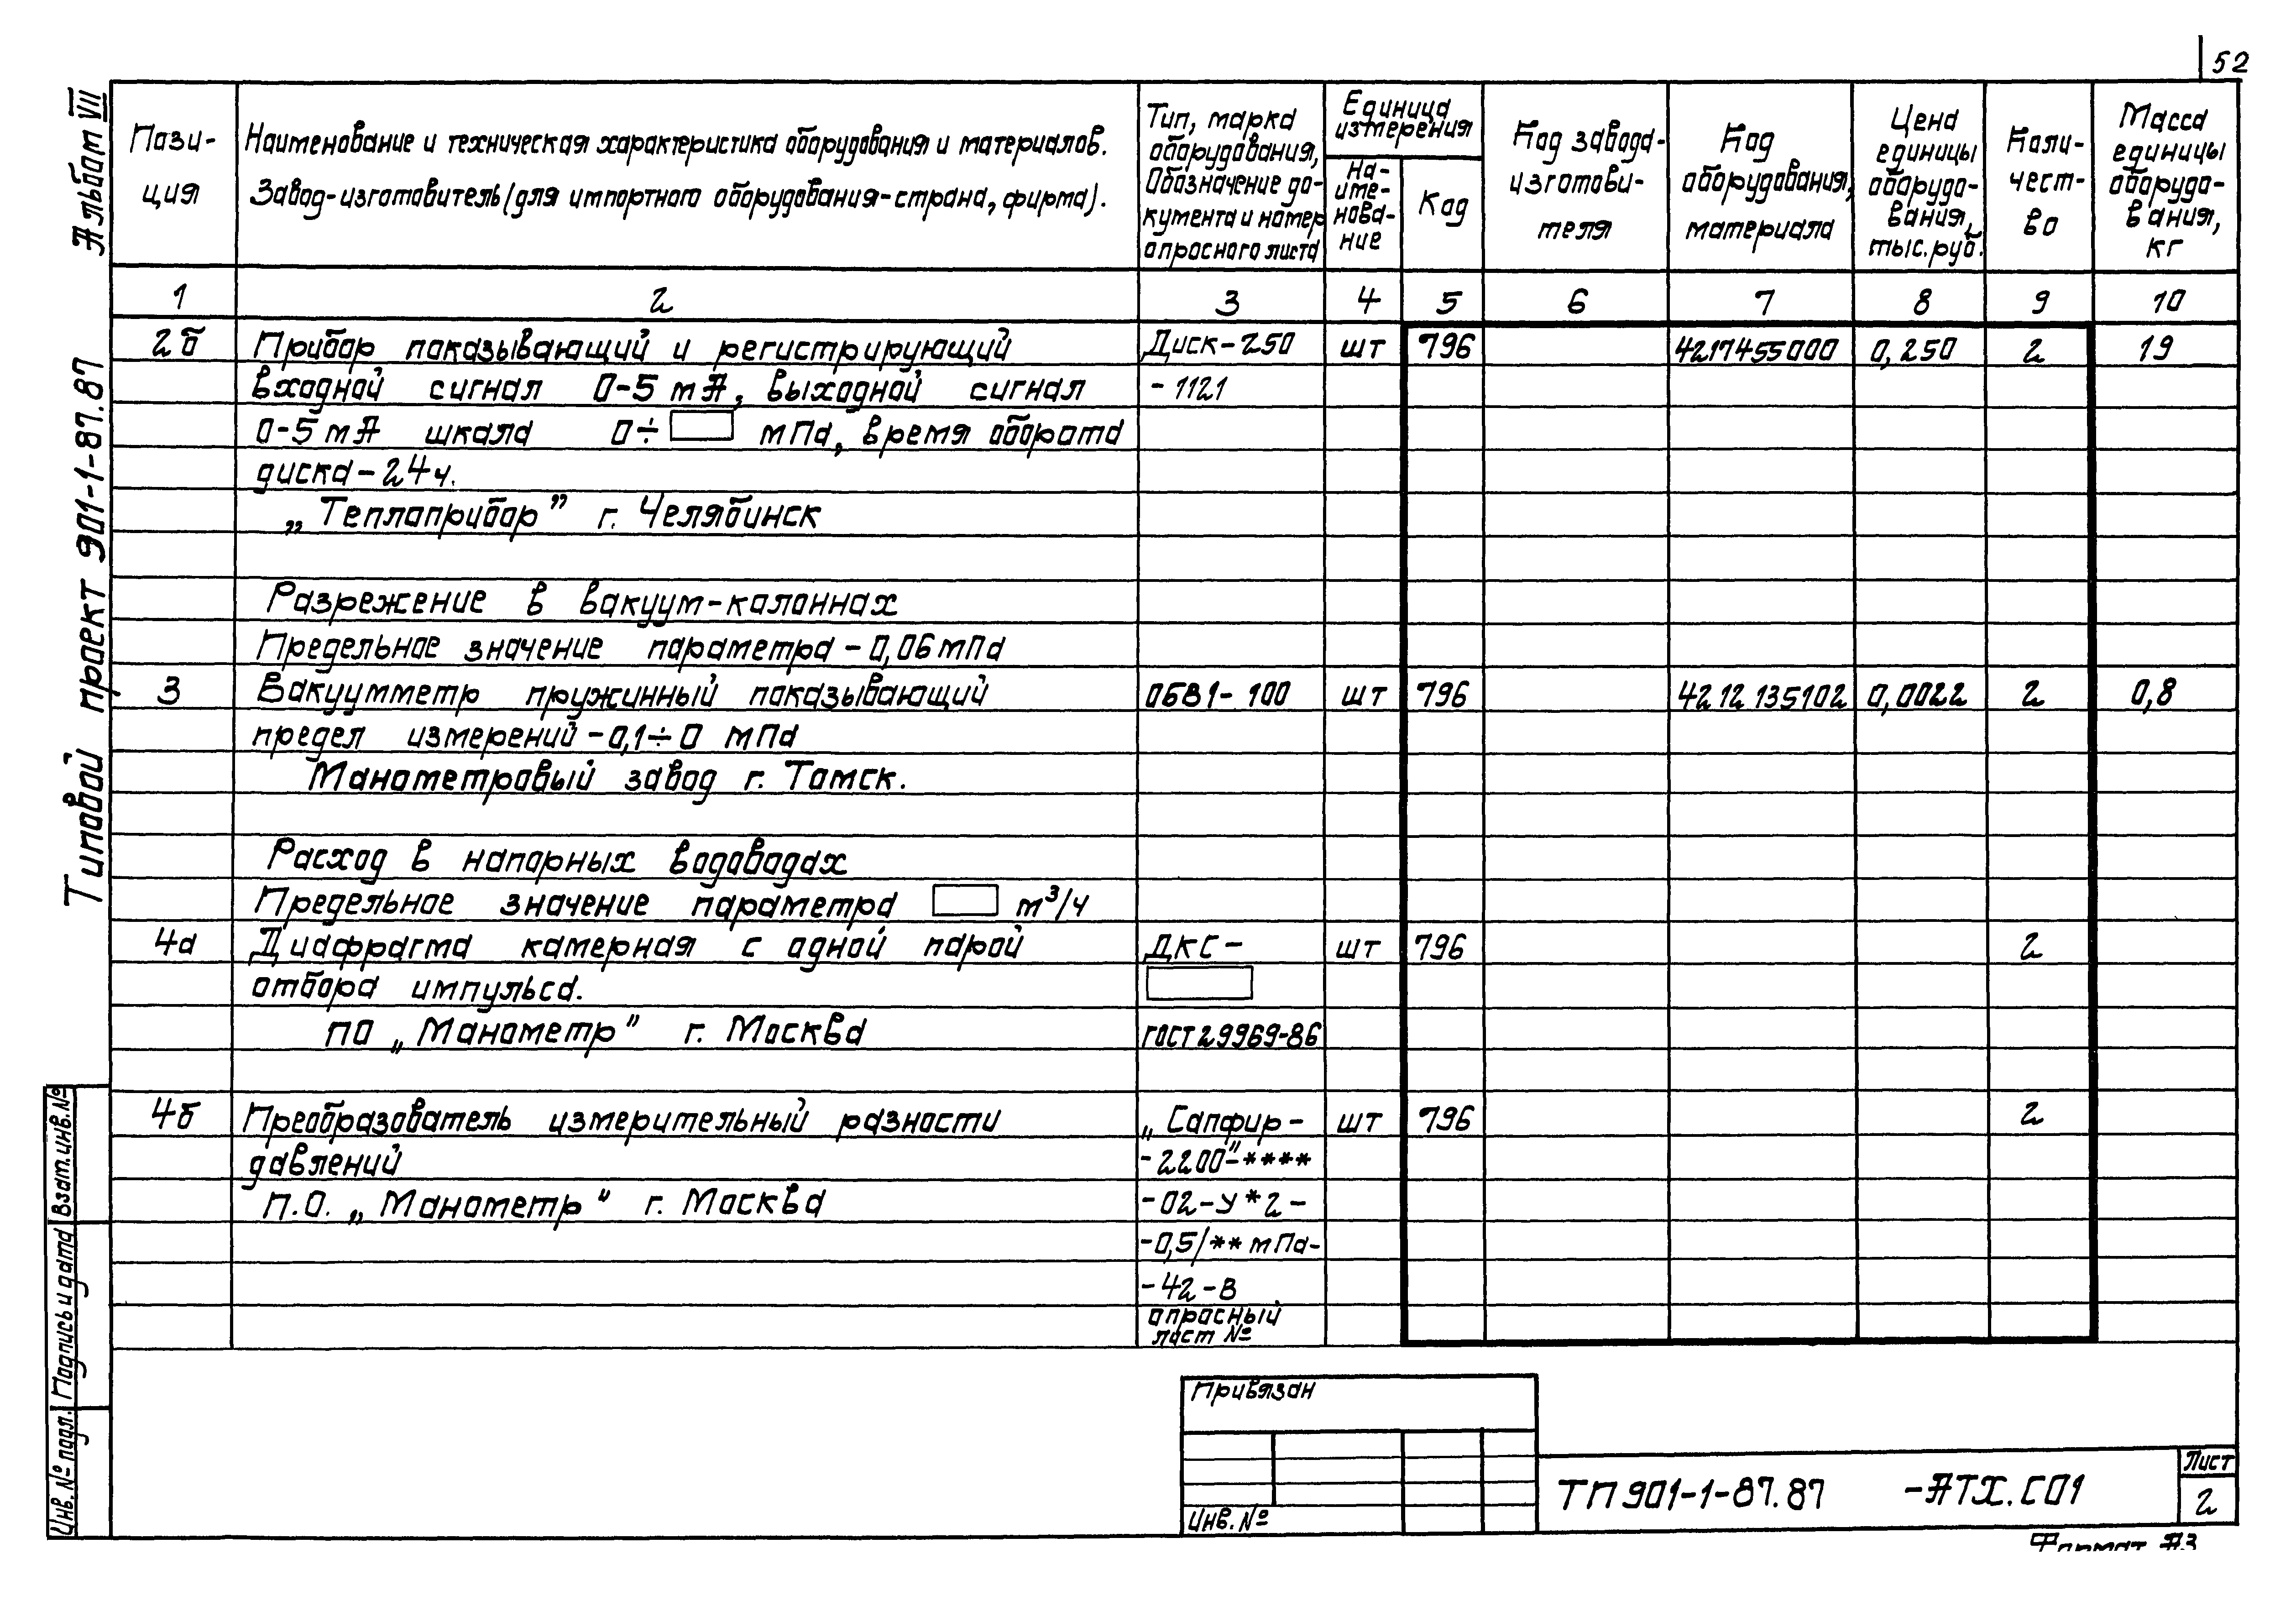 52
Альбом VII
Типовой проект 901-1-87.87
Взам.инв.№
Подпись и дата
Инв.№ подл.
Пози-
ция
Наименование и техническая характеристика оборудования и материалов.
Завод-изготовитель (для импортного оборудования-страна, фирма).
Тип, марка
оборудования,
Обозначение до-
кумента и номер
опросного листа
Единица
измерения
На-
име-
нова-
ние
Код
Код завода-
изготови-
теля
Код
оборудования,
материала
Цена
единицы
оборудо-
вания,
тыс.руб.
Коли-
чест-
во
Масса
единицы
оборудо-
вания,
кг
1 2 3 4 5 6 7 8 9 10
2б Прибор показывающий и регистрирующий Диск-250 шт 796 4217455000 0,250 2 19
входной сигнал 0-5 мА, выходной сигнал -1121
0-5 мА шкала 0÷ мПа, время оборота
диска-24ч.
„Теплоприбор” г. Челябинск
Разрежение в вакуум-колоннах
Предельное значение параметра -0,06 мПа
3 Вакуумметр пружинный показывающий ОБВ1-100 шт 796 4212135102 0,0022 2 0,8
предел измерений -0,1÷0 мПа
Манометровый завод г. Томск.
Расход в напорных водоводах
Предельное значение параметра м³/ч
4а Диафрагма камерная с одной парой ДКС- шт 796 2
отбора импульса.
ПО „Манометр” г. Москва ГОСТ29969-86
4б Преобразователь измерительный разности „Сапфир- шт 796 2
давлений -2200”-****
П.О. „Манометр” г. Москва -02-У*2-
-0,5/**мПа-
-42-В
опросный
лист №
Привязан
Инв.№
ТП 901-1-87.87 -АТХ.СО1
Лист
2
Формат А3